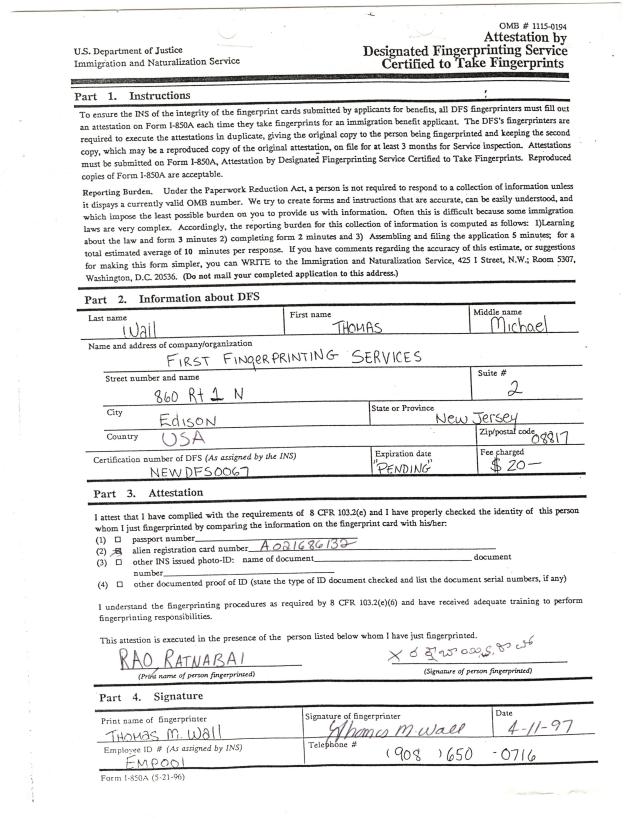 OMB # 1115-0194
U.S. Department of Justice
Immigration and Naturalization Service
Attestation by
Designated Fingerprinting Service
Certified to Take Fingerprints
Part 1. Instructions
To ensure the INS of the integrity of the fingerprint cards submitted by applicants for benefits, all DFS fingerprinters must fill out
an attestation on Form I-850A each time they take fingerprints for an immigration benefit applicant. The DFS's fingerprinters are
required to execute the attestations in duplicate, giving the original copy to the person being fingerprinted and keeping the second
copy, which may be a reproduced copy of the original attestation, on file for at least 3 months for Service inspection. Attestations
must be submitted on Form I-850A, Attestation by Designated Fingerprinting Service Certified to Take Fingerprints. Reproduced
copies of Form I-850A are acceptable.
Reporting Burden. Under the Paperwork Reduction Act, a person is not required to respond to a collection of information unless
it dispays a currently valid OMB number. We try to create forms and instructions that are accurate, can be easily understood, and
which impose the least possible burden on you to provide us with information. Often this is difficult because some immigration
laws are very complex. Accordingly, the reporting burden for this collection of information is computed as follows: 1)Learning
about the law and form 3 minutes 2) completing form 2 minutes and 3) Assembling and filing the application 5 minutes; for a
total estimated average of 10 minutes per response. If you have comments regarding the accuracy of this estimate, or suggestions
for making this form simpler, you can WRITE to the Immigration and Naturalization Service, 425 I Street, N.W.; Room 5307,
Washington, D.C. 20536. (Do not mail your completed application to this address.)
Part 2. Information about DFS
Last name First name Middle name
Wall THOMAS Michael
Name and address of company/organization
FIRST FINGERPRINTING SERVICES
Street number and name Suite #
860 Rt 1 N 2
City State or Province
EDISON New Jersey
Country Zip/postal code
USA 08817
Certification number of DFS (As assigned by the INS) Expiration date Fee charged
NEWDFS0067 "PENDING" $ 20—
Part 3. Attestation
I attest that I have complied with the requirements of 8 CFR 103.2(e) and I have properly checked the identity of this person
whom I just fingerprinted by comparing the information on the fingerprint card with his/her:
(1) passport number
(2) alien registration card number A021686132
(3) other INS issued photo-ID: name of document document
number
(4) other documented proof of ID (state the type of ID document checked and list the document serial numbers, if any)
I understand the fingerprinting procedures as required by 8 CFR 103.2(e)(6) and have received adequate training to perform
fingerprinting responsibilities.
This attestion is executed in the presence of the person listed below whom I have just fingerprinted.
RAO, RATNABAI X
(Print name of person fingerprinted) (Signature of person fingerprinted)
Part 4. Signature
Print name of fingerprinter Signature of fingerprinter Date
THOMAS M. Wall Thomas M. Wall 4-11-97
Employee ID # (As assigned by INS) Telephone #
EMP001 (908) 650-0716
Form I-850A (5-21-96)